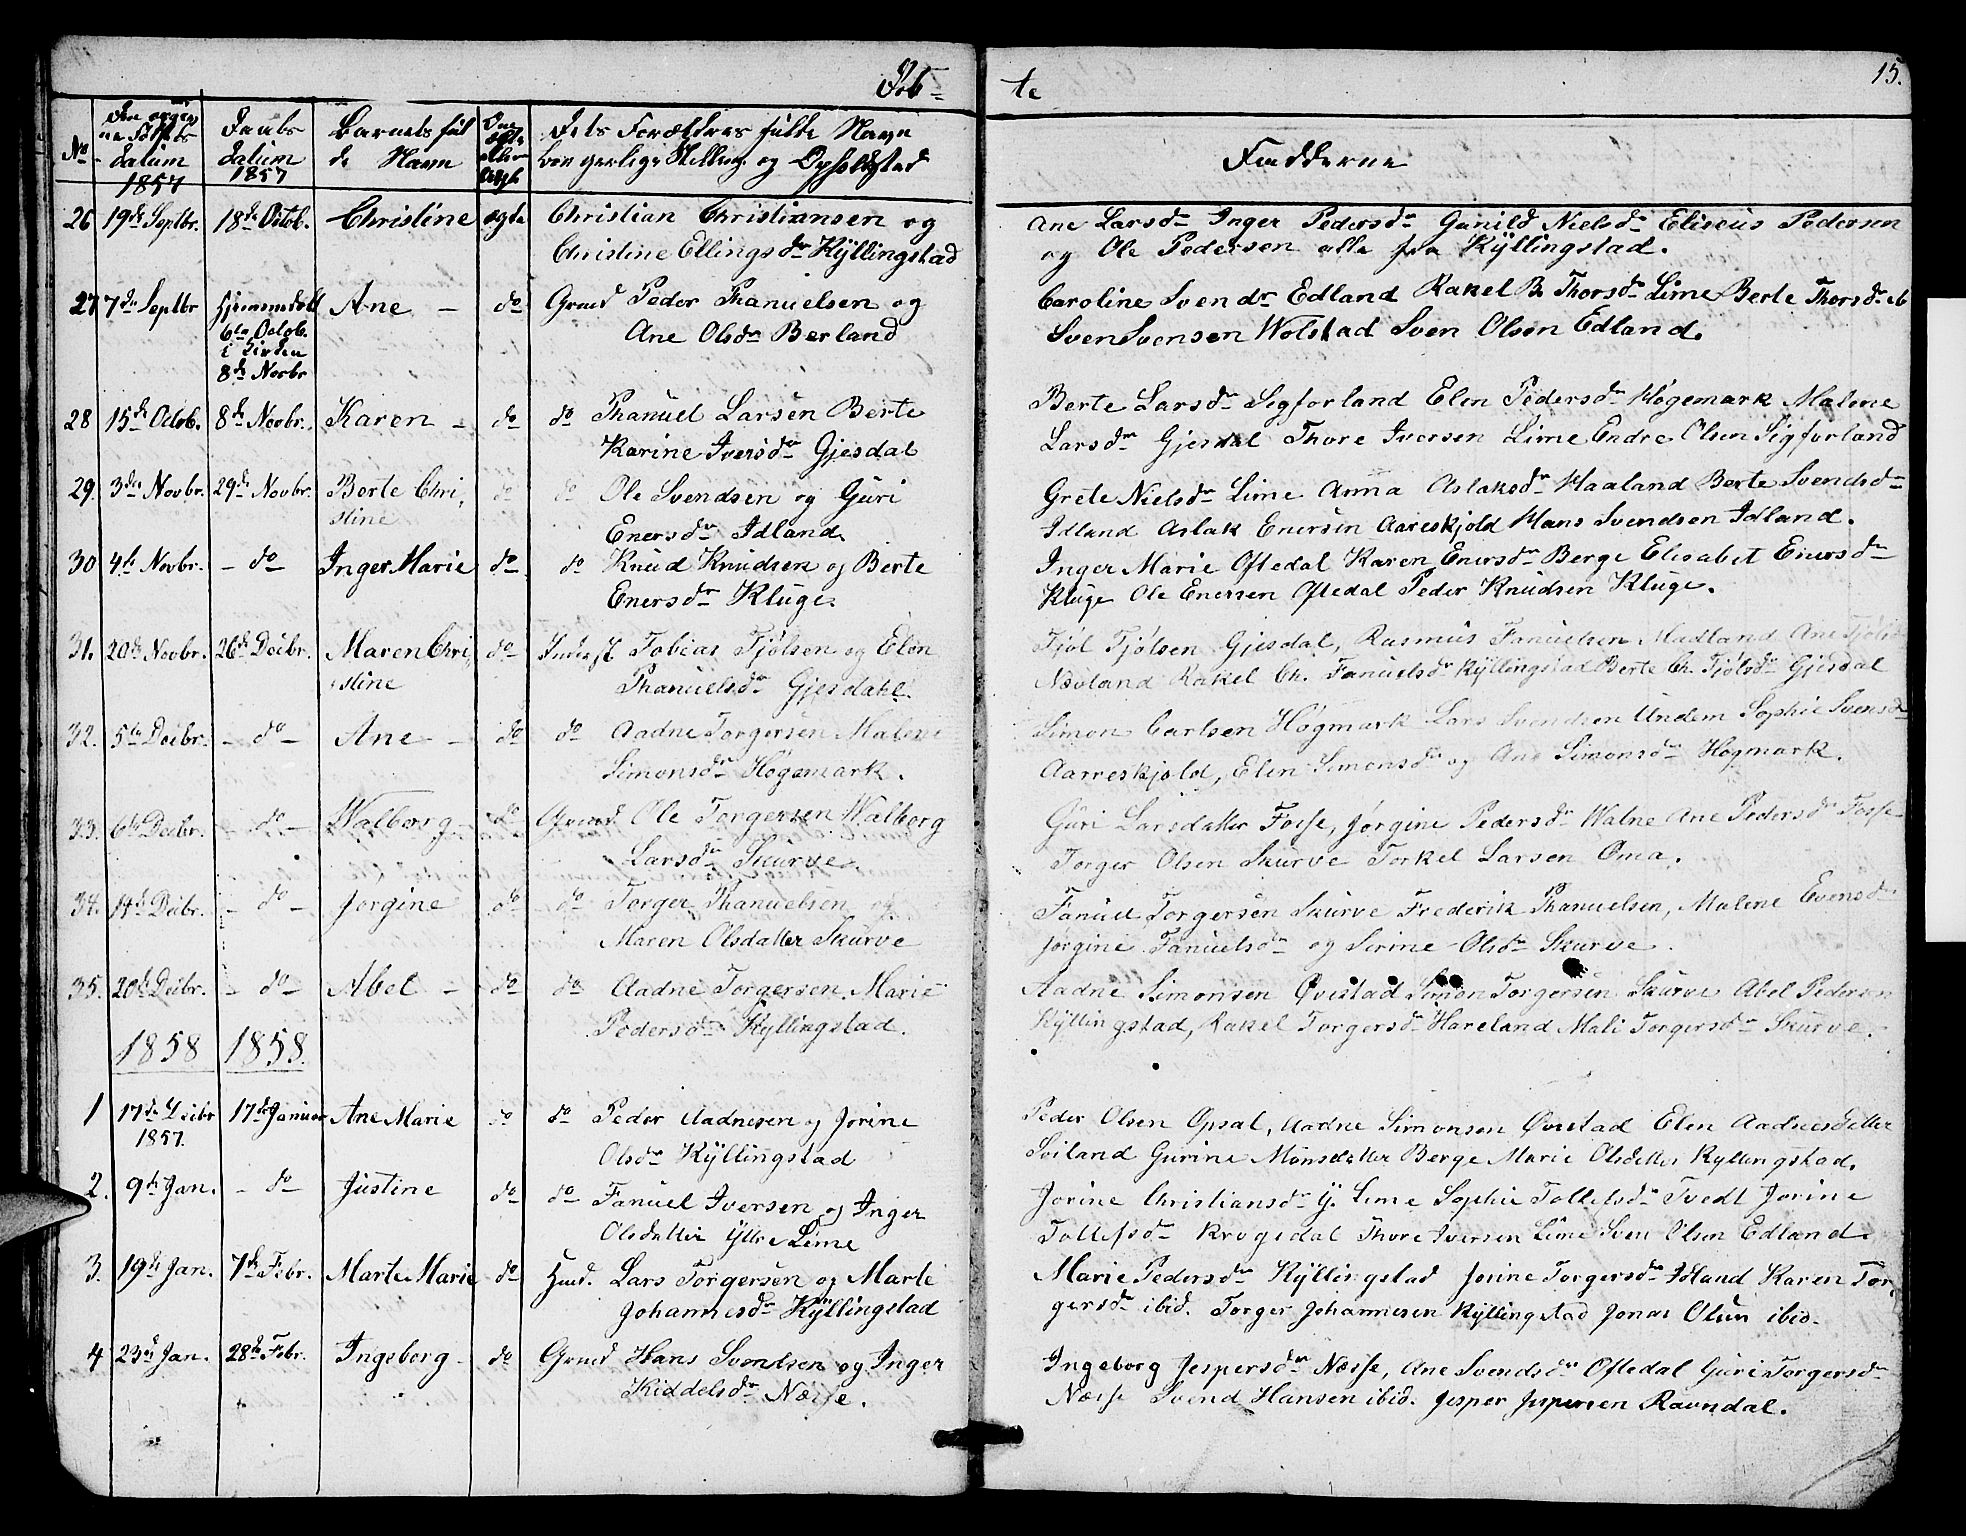 Døb-
te 15.
No Den opgivne Fødselsdatum 1857 Daabs datum 1857 Barnets fulde Navn Om ægte eller uægte Dets Forældres fulde Navn borgerlige Stilling og Opholdsted Fadderne
26 19de Septbr. 18de Octob. Christine ægte Christian Christiansen og
Christine Ellingsdr Kÿllingstad
Ane Larsdr Inger Pedersdr Gunild Nielsdr Eliseus Pedersen
og Ole Pedersen alle fra Kÿllingstad.
27 7de Septbr Hjemmedøbt Ane - do Grmd Peder Thanuelsen og
6te Octob. i Kirken 8de Novbr Ane Olsdr Berland
Caroline Svendr Edland Rakel B. Thorsdr Lime Berte Thorsdr ib
Sven Svensen Wolstad Sven Olsen Edland.
28 15de Octob. 8de Novbr. Karen - do do Thanuel Larsen Berte
Karine Iversdr Gjesdal
Berte Larsdr Sigforland Elen Pedersdr Høgemark Malene
Larsdr Gjesdal Thore Iversen Lime Endre Olsen Sigforland
29. 3die Novbr. 29de Novbr. Berte Chri, do do Ole Svendsen og Guri
stine Enersdr Idland.
Grete Nielsdr Lime Anna Aslaksdr Haaland Berte Svendsdr
Idland Aslak Enersen Aareskjold Hans Svendsen Idland.
30 4de Novbr. - do - Inger Marie do do Knud Knudsen og Berte
Enersdr Kluge.
Inger Marie Oftedal Karen Enersdr Berge Elisabet Enersdr
Kluge Ole Enersen Oftedal Peder Knudsen Kluge.
31. 20de Novbr. 26de Decbr. Maren Chri, do Inderst Tobias Tjølsen og Elen
stine Thanuelsdr Gjesdahl.
Tjøl Tjølsen Gjesdal, Rasmus Fanuelsen Madland Ane Tjølsdr
Næoland Rakel Ch. Fanuelsdr Kÿllingstad Berte Ch. Tjølsdr Gjesdal
32. 5te Decbr. - do - Ane - do do Aadne Torgersen Malene
Simonsdr Høgemark.
Simon Carlsen Høgmark Lars Svendsen Undem Sophie Svensdr
Aareskjold, Elen Simonsdr og Ane Simonsdr Høgmark.
33. 6te Decbr. - do - Walborg - do Grmd. Ole Torgersen Walborg
Larsdr Skurve.
Guri Larsdatter Fosse, Jørgine Pedersdr Walne Ane Pedersdr Fosse
Torger Olsen Skurve Torkel Larsen Oma.
34. 14de Decbr. - do - Jorgine do do Torger Thanuelsen og
Maren Olsdatter Skurve
Fanuel Torgersen Skurve Frederik Thanuelsen, Malene Evensdr
Jorgine Fanuelsdr og Serine Olsdr Skurve.
35. 20de Decbr. - do - Abel - do do Aadne Torgersen Marie
Pedersdr Kyllingstad.
Aadne Simonsen Qvistad Simon Torgersen Skurve Abel Pedersen
Kÿllingstad, Rakel Torgersdr Hareland Mali Torgersdr Skurve.
1858 1858.
1 17de Decbr 1857. 17de Januar Ane Marie do do Peder Aadnesen og Jorine
Olsdr Kÿllingstad
Peder Olsen Opsal, Aadne Simonsen Qvistad Elen Aadnesdatter
Soiland Gurine Monsdatter Berge Marie Olsdatter Kyllingstad.
2. 9de Jan. - do - Justine do do Fanuel Iversen og Inger
Olsdatter Ÿttre Lime
Jorine Christiansdr Ÿ. Lime Sophie Tollefsdr Tvedt Jorine
Tollefsdr Krogedal Thore Iversen Lime Sven Olsen Edland.
3. 19de Jan. 7de Febr. Marte Marie do Hmd. Lars Torgersen og Marte
Johannesdr Kÿllingstad
Marie Pedersdr Kÿllingstad Jorine Torgersdr Idland Karen Tor,
gersdr ibid. Torger Johannesen Kÿllingstad Jonas Olsen ibid.
4 23de Jan. 28de Febr. Ingeborg - do Grmd Hans Svendsen og Inger
Kiddelsdr Næsse.
Ingeborg Jespersdr Næsse, Ane Svendsdr Oftedal Guri Torgersdr
Næsse Svend Hansen ibid. Jesper Jespersen Ravndal.